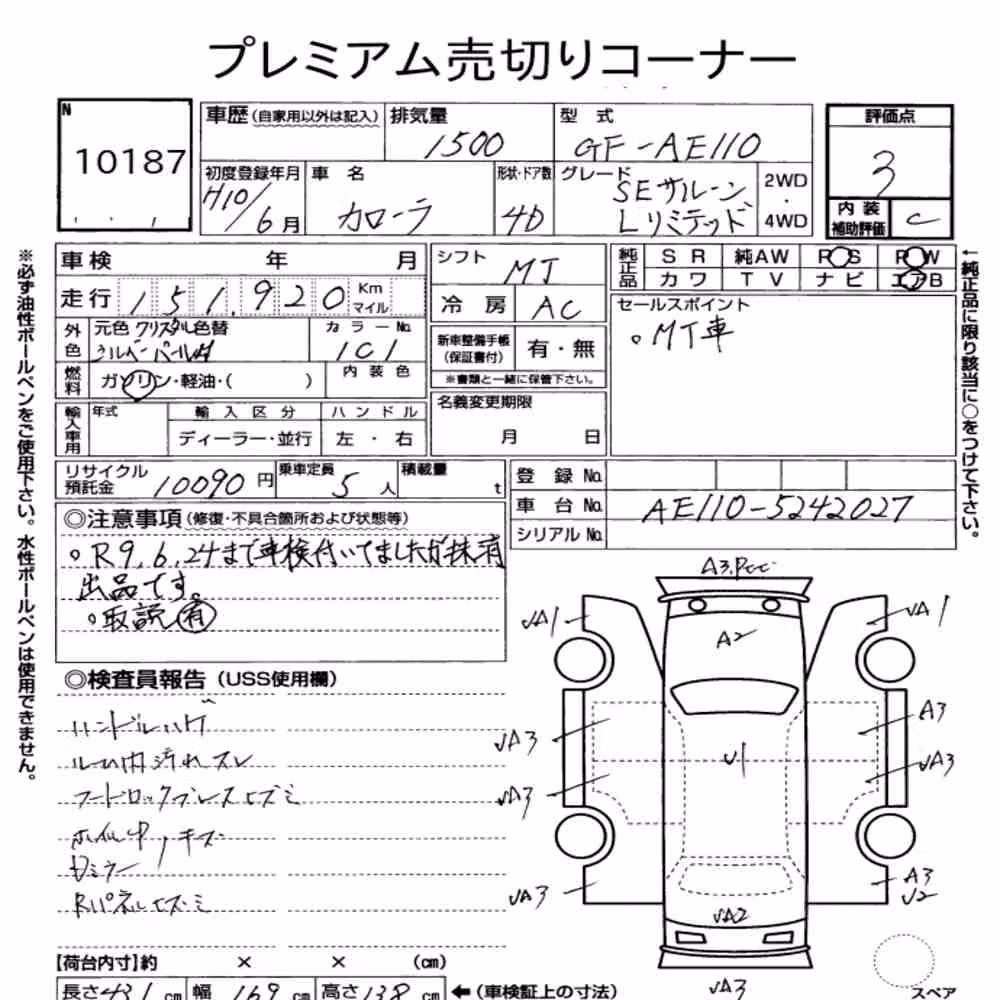 プレミアム売切りコーナー
N
10187
車歴(自家用以外は記入)
排気量
1500
型 式
GF-AE110
評価点
3
内装補助評価
C
初度登録年月
H10/6月
車 名
カローラ
形状・ドア数
4D
グレード
SEサルーン
Lリミテッド
2WD
・
4WD
車検 年 月
走行 151,920 Km マイル
外色
元色 クリスタル色替
シルバーパールM
カラーNo.
1C1
燃料
ガソリン・軽油・( )
内装色
輸入車用
年式
輸入区分
ディーラー・並行
ハンドル
左・右
シフト
MT
冷房
AC
新車整備手帳
(保証書付)
有・無
※書類と一緒に保管下さい。
名義変更期限
月 日
純正品
SR 純AW PS PW
カワ TV ナビ エアB
セールスポイント
。MT車
リサイクル預託金 10090円
乗車定員 5人
積載量 t
登録No.
車台No. AE110-5242027
シリアルNo.
◎注意事項(修復・不具合箇所および状態等)
。R9,6,24まで車検付いてましたが抹消
出品です。
。取説(有)
◎検査員報告(USS使用欄)
ハンドルハゲ
ルーム内汚れスレ
フードロックブレースヒズミ
ホイル中ノキズ
Dミラー
Rパネルヒズミ
【荷台内寸】約 × × (cm)
長さ431cm 幅169cm 高さ138cm ←(車検証上の寸法)
A3.Pcc
A2
UA1
UA1
UA3
A3
U1
UA3
UA3
UA3
A3
U2
UA2
UA3
スペア
※必ず油性ボールペンをご使用下さい。水性ボールペンは使用できません。
←純正品に限り該当に○をつけて下さい。